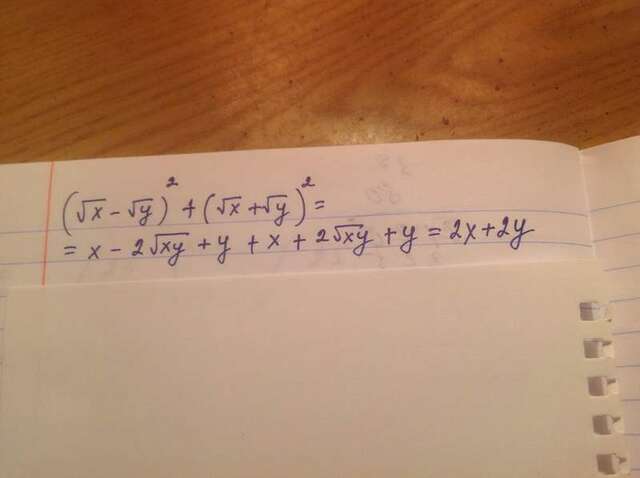 (√x - √y)² + (√x + √y)² =
= x - 2√xy + y + x + 2√xy + y = 2x + 2y